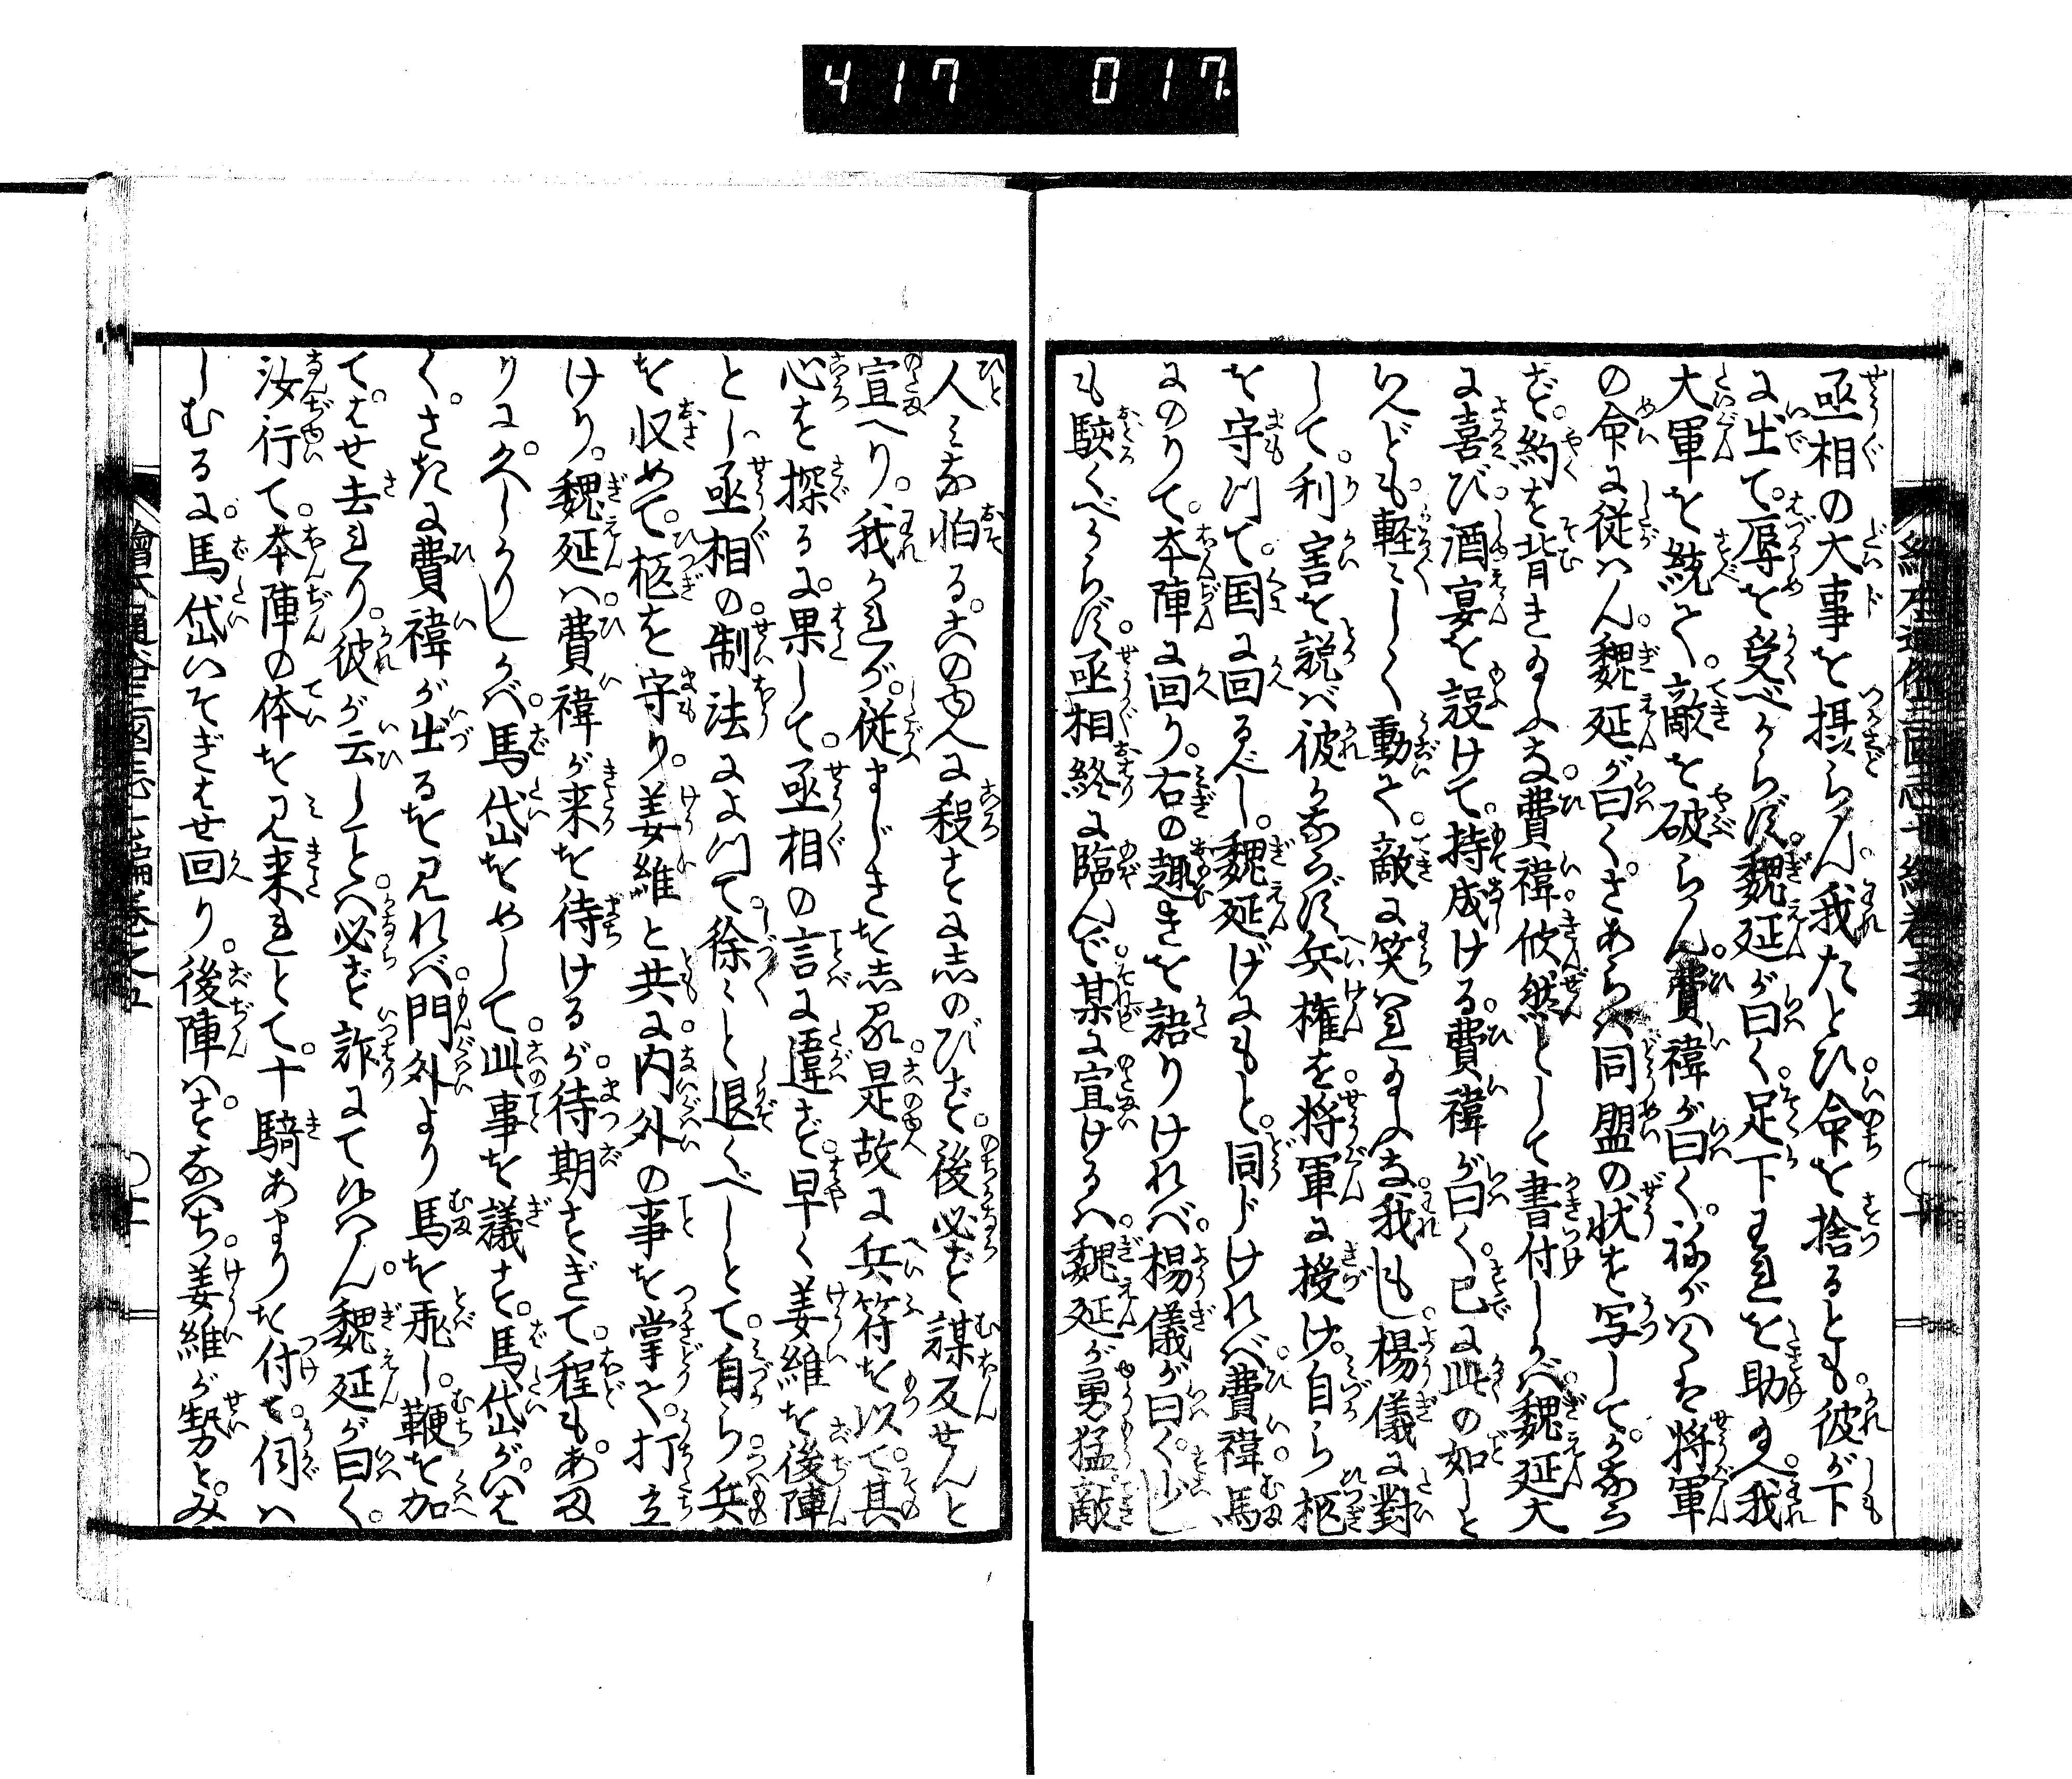 417 017.
亟相の大事を摂らん。我たとひ。命を捨るとも。彼が下
に出て。辱を受べからず。魏延が曰く。足下われを助给へ。我
大軍を統て。敵を破らん。費禕が曰く。ねがハくは将軍
の命に従ハん。魏延が曰く。さあらバ同盟の状を写して。かならず
約を背き給ふな。費禕佽然として書付しかバ。魏延大
に喜び。酒宴を設けて。持成ける。費禕が曰く。已に此の如しと
いへども。軽〻しく動て。敵に笑ハれ給ふな。我もし。楊儀に對
して。利害を説バ。彼かならず兵権を。将軍に授け。自ら柩
を守つて。国に回るべし。魏延げにもと。同じけれバ。費禕。馬
にのりて。本陣に回り。右の趣きを語りけれバ。楊儀が曰く。少し
も駭くべからず。亟相終に臨んで。某に宣けるハ。魏延が勇猛。敵
人みな怕る。このゆへに殺すに忍のびず。後必ず謀反せんと
宣へり。我かれが。従ふまじきを志る。是故に兵符を以て。其
心を探るに。果して。亟相の言に違ず。早く姜維を後陣
とし。亟相の。制法によつて。徐〻と退くべしとて。自ら兵
を収めて。柩を守り。姜維と共に。内外の事を掌て。打立
けり。魏延ハ。費禕が来を待けるが。待期すぎて。程もあま
りに。久しかりしかバ。馬岱をめして。此事を議す。馬岱がいは
く。さきに費禕が出るを見れバ。門外より馬を飛し。鞭を加
て。はせ去れり。彼が云しことハ。必ず詐にて候ハん。魏延が曰く。
汝行て。本陣の体を見来れとて。十騎あまりを付て。伺ハ
しむるに。馬岱いそぎはせ回り。後陣ハ。すなハち。姜維が勢と。み